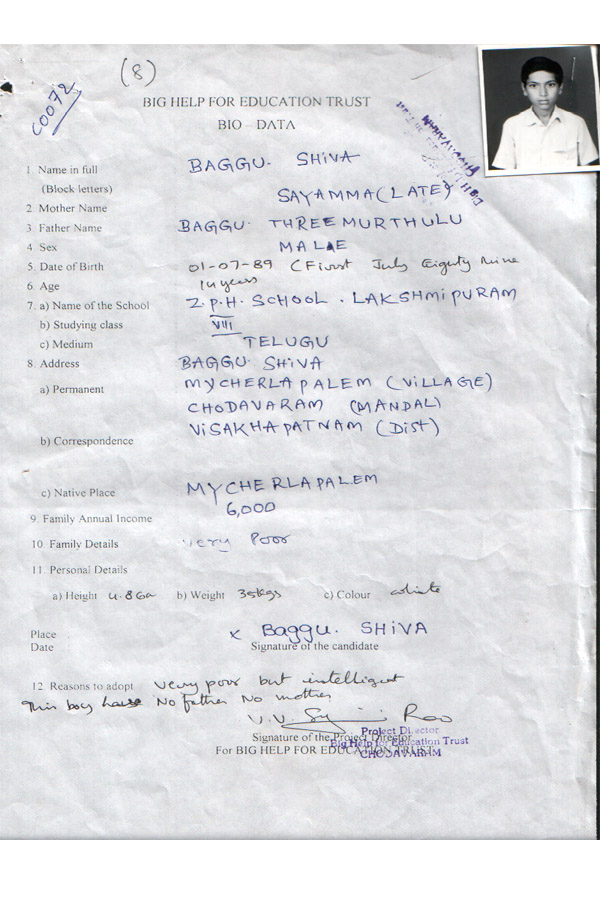 (8)
C0072
BIG HELP FOR EDUCATION TRUST
BIO - DATA
1 Name in full BAGGU. SHIVA
(Block letters)
2 Mother Name SAYAMMA (LATE)
3 Father Name BAGGU. THREEMURTHULU
4 Sex MALE
5. Date of Birth 01-07-89 (First July Eighty Nine
6. Age 14 years
7. a) Name of the School Z.P.H. SCHOOL. LAKSHMIPURAM
b) Studying class VIII
c) Medium TELUGU
8. Address BAGGU. SHIVA
a) Permanent MYCHERLAPALEM (VILLAGE)
CHODAVARAM (MANDAL)
VISAKHAPATNAM (Dist)
b) Correspondence
c) Native Place MYCHERLAPALEM
9. Family Annual Income 6,000
10. Family Details very Poor
11. Personal Details
a) Height 4.8 b) Weight 35kgs c) Colour white
Place x Baggu. SHIVA
Date Signature of the candidate
12 Reasons to adopt very poor but intelligent
This boy have No father No mother
Rao
Project Director
Signature of the Project Director
Big Help for Education Trust
For BIG HELP FOR EDUCATION TRUST
CHODAVARAM